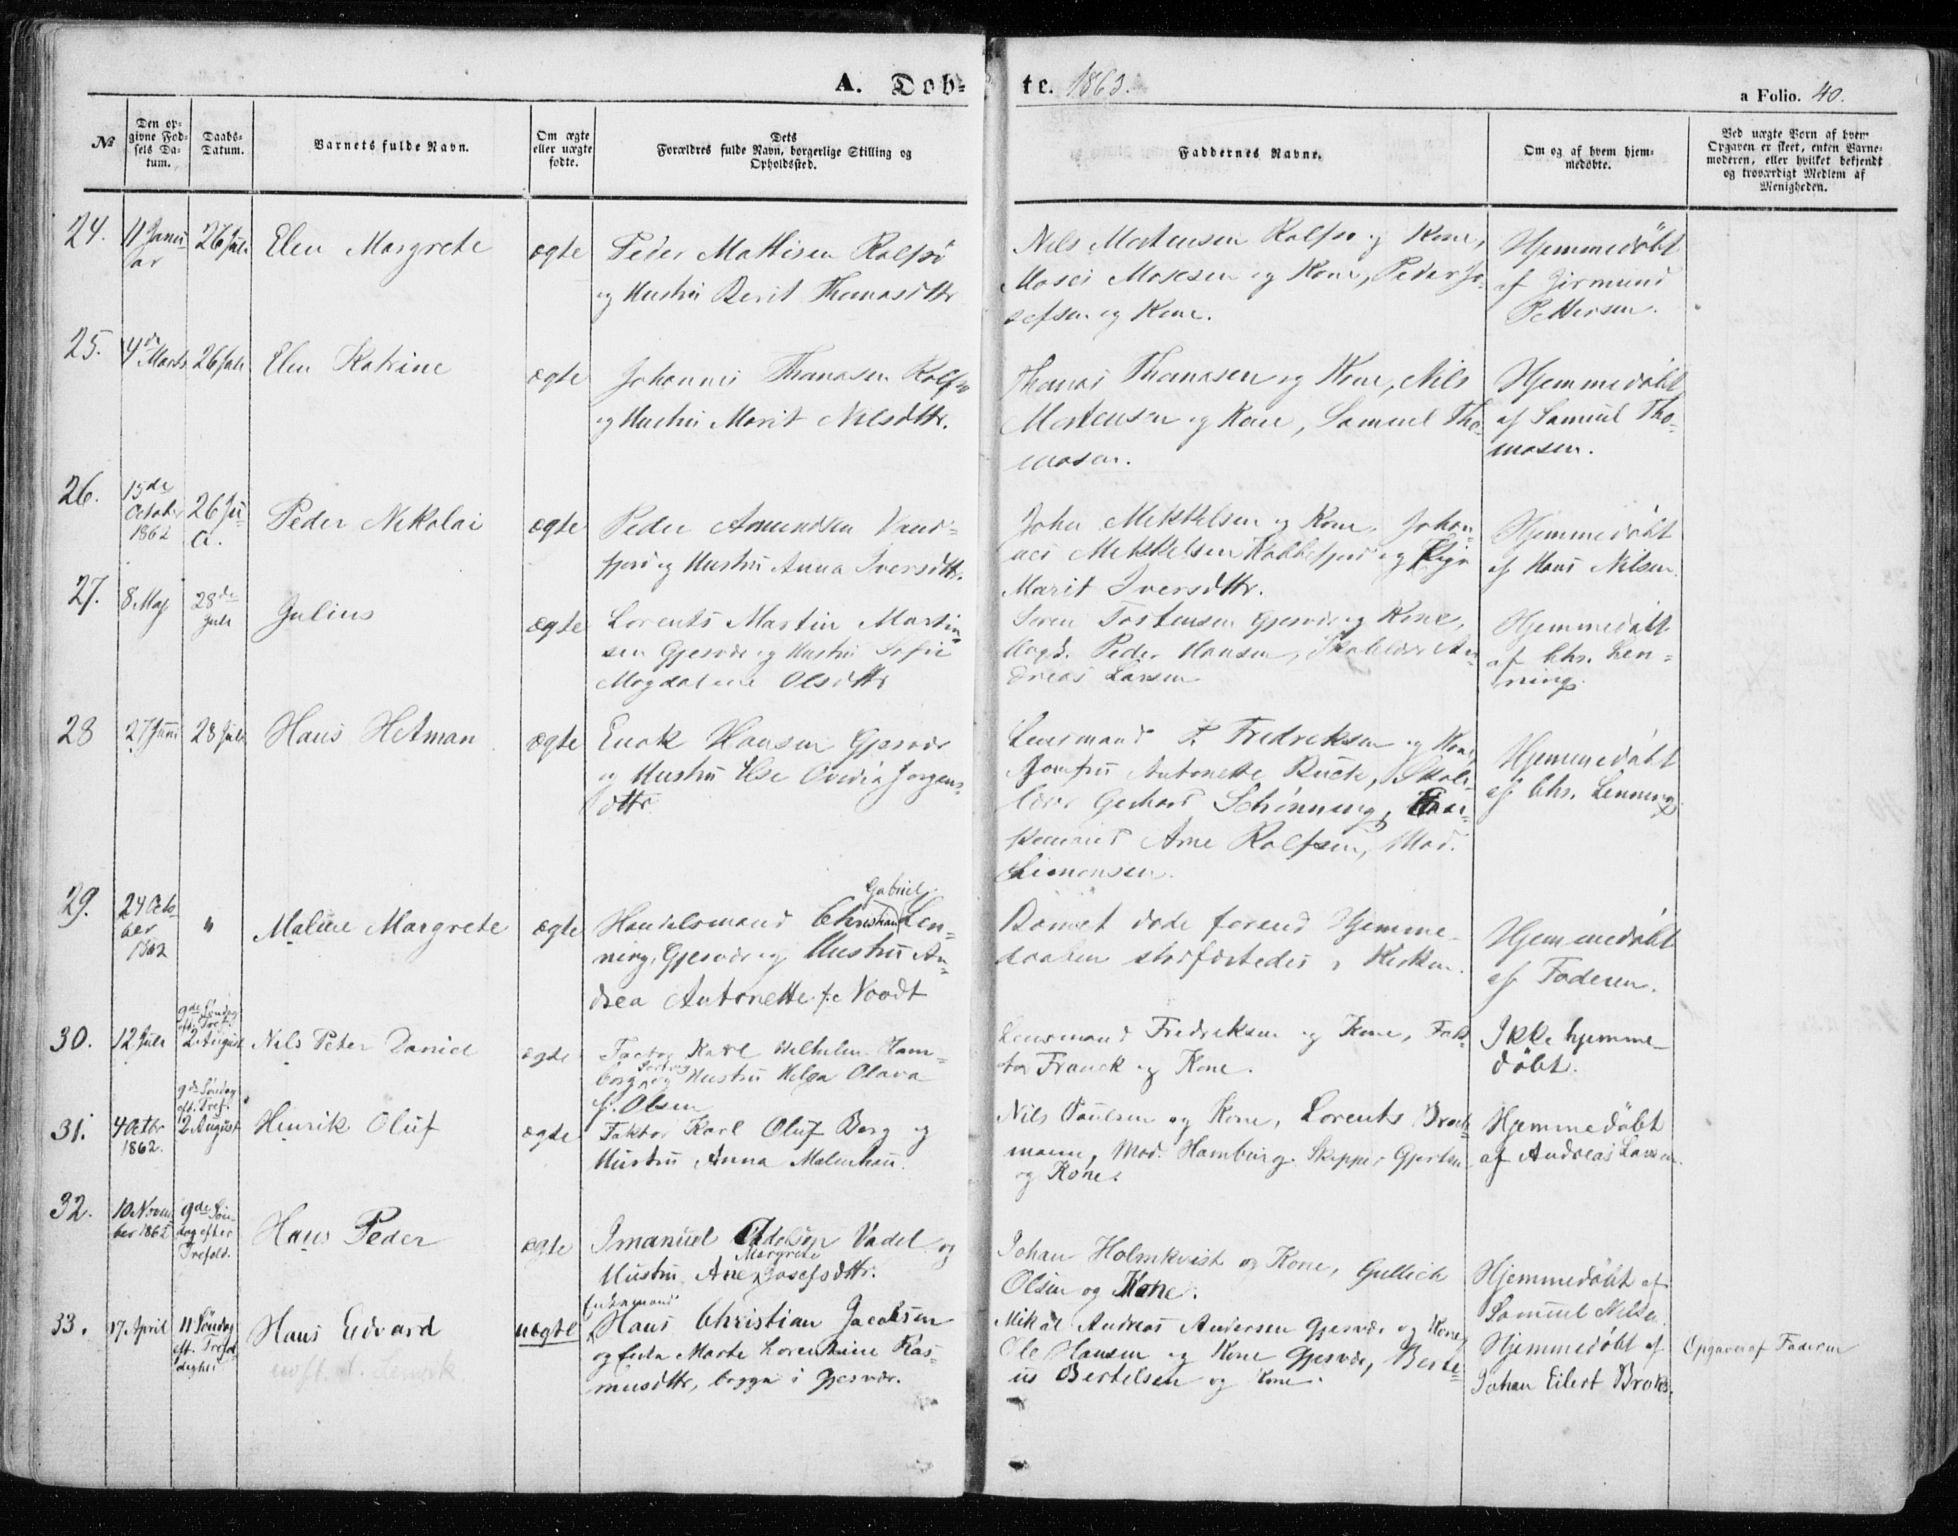 A. Døb-
te. 1863.
a Folio. 40.
№
Den op-
givne Fød-
sels Da-
tum.
Daabs-
Datum.
Barnets fulde Navn.
Om ægte
eller uægte
fødte.
Dets
Forældres fulde Navn, borgerlige Stilling og
Opholdssted.
Faddernes Navne.
Om og af hvem hjem-
medøbte.
Ved uægte Børn af hvem
Opgaven er skeet, enten Barne-
moderen, eller hvilket bekjendt
og troværdigt Medlem af
Menigheden.
24.
11 Janu-
ar
26 Juli
Elen Margrete
ægte
Peder Mathisen Rolfsø
og Hustru Berit Thomasdttr
Nils Mortensen Rolfsø og Kone,
Moses Mosesen og Kone, Peder Jo-
sefsen og Kone.
Hjemmedøbt
af Girmund
Pettersen.
25.
4de Marts
26 Juli
Elen Katrine
ægte
Johannes Thomasen Rolfsø
og Hustru Marit Nilsdttr.
Thomas Thomasen og Kone, Nils
Mortensen og Kone, Samuel Tho-
masen.
Hjemmedøbt
af Samuel Tho-
masen.
26.
15de
October
1862
26 Ju-
li.
Peder Nikolai
ægte
Peder Amundsen Vand-
fjord og Hustru Anna Iversdttr.
John Mikkelsen og Kone, Johan-
nes Mikkelsen Kobbefjord og Pige
Marit Iversdttr.
Hjemmedøbt
af Hans Nilsen.
27.
8 Maj
28de
Juli
Julius
ægte
Lorents Martin Martin-
sen Gjesvær og Hustru Sofie
Magdalene Olsdttr
Søren Torstensen Gjesvær og Kone,
Peder Hansen, Skolelærer An-
dreas Larsen
Hjemmedøbt
af Chr. Len-
ning.
28
27 Juni
28 Juli
Hans Hetman
ægte
Enok Hansen Gjesvær
og Hustru Else Ovedia Jørgens-
dttr
Lensmand P. Fredriksen og Kone,
Jomfru Antonette Buck, Skole-
lærer Gerhard Schønning,
Arne Rolfsen, Mad.
Simonsen.
Hjemmedøbt
af Chr. Lenning.
29.
24 Octo-
ber
1862
"
Maline Margrete
ægte
Gabriel
Handelsmand Christian Len-
ning, Gjesvær og Hustru An-
drea Antonette f: Noodt
Barnet døde førend Hjemme-
daaben stadfæstedes i Kirken.
Hjemmedøbt
af Faderen.
30.
12 Juli
9de Søndag
eft. Tref.
2 August
Nils Peter Daniel
ægte
Factor Karl Wilhelm Ham-
borg og Hustru Helga Olava
f. Olsen
Lensmand Fredriksen og Kone, Fak-
tor Franck og Kone.
Ikke hjemme-
døbt.
31.
4 Octbr
1862.
9de Søndag
eft. Tref.
2 August
Henrik Oluf
ægte
Faktor Karl Oluf Berg og
Hustru Anna Malmhau.
Nils Paulsen og Kone, Lorents Brock-
mann, Mad. Hamburg. Skipper Gjertsen
og Kone.
Hjemmedøbt
af Andreas Larsen.
32.
10 Novem-
ber 1862
9de Søn-
dag efter
Trefold.
Hans Peder
ægte
Imanuel Adelsen Vadel og
Margrete
Hustru Ane Josefsdttr.
Johan Holmkvist og Kone, Gullich
Olsen og Kone.
Hjemmedøbt af
Samuel Nilsen
33.
17. April
11 Søndag
eft. Trefol-
dighed
Hans Edvard
uægte
Enkemand
Hans Christian Jacobsen
og Enke Marte Lorentine Ras-
musdttr, begge i Gjesvær.
Mikal Andreas Andersen Gjesvær og Kone,
Ole Hansen og Kone Gjesvær, Berte-
us Bertelsen og Kone.
Hjemmedøbt af
Johan Eilert Broks.
Opgaver af Faderen